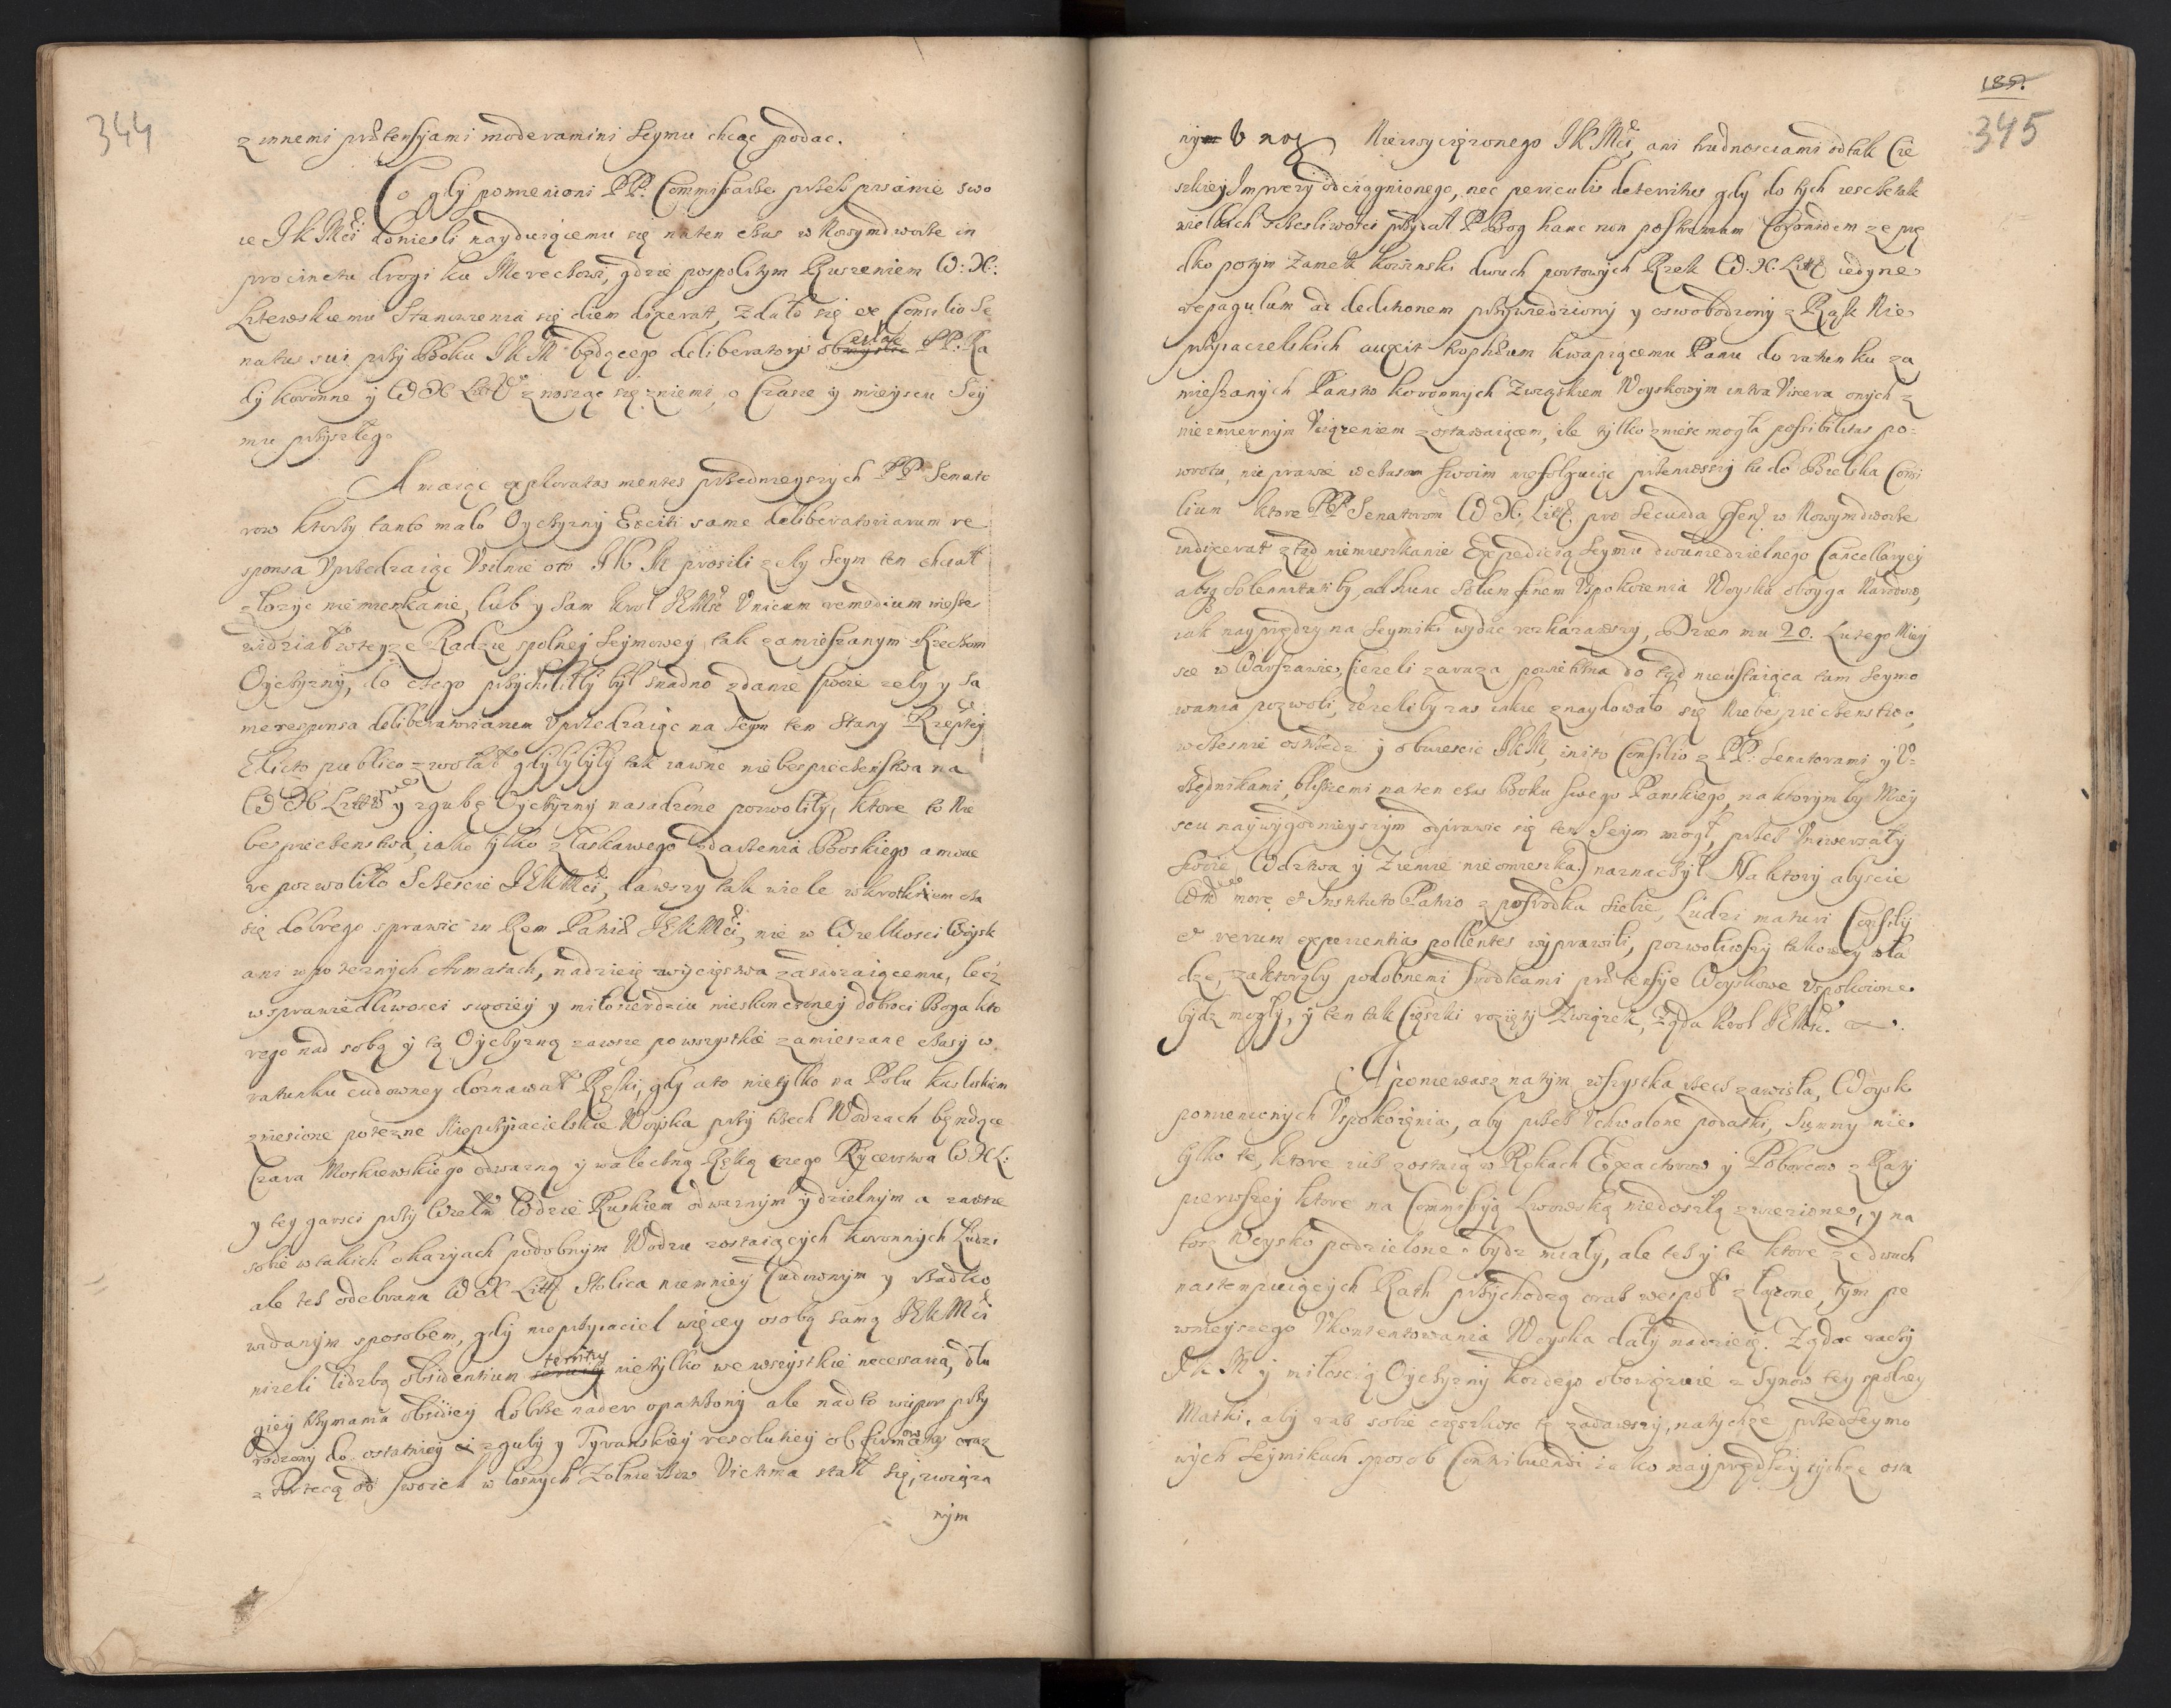 344
z innemi prætensyami moderamini Seymu chcąc podac.
Co gdy pomienioni PP. Commissarze przez pisanie swo
ie JKMći donieśli nayduiącemu się na ten czas w Nowymdworze in
procinctu drogi ku Mereczowi, gdzie pospolitym Ruszeniem W: X:
Litewskiemu Stanowienia się diem dixerat, zdało się ex Consilio Se
natus sui przy Boku JKM będącego deliberatoriis obesłac PP. Ra
dy koronne y W X Litt znosząc się z niemi, o Czasie y mieyscu Sey
mu przyszłego
A maiąc exploratas mentes przednieyszych PP Senato
row ktorzy tanto malo Oyczyzny Exciti same deliberatoriarum re
sponsa Vprzedzaiąc Vsilnie oto JKM prosili zeby Seym ten chciał
złozyc niemieszkanie, lub y sam krol JEMść Vnicum remedium iesze
widział w teyze Radzie spolney Seymowey, tak zamieszanym Rzeczom
Oyczyzny, do czego przychililby był snadno zdanie swoie zeby y sa
me responsa deliberatorianem Vprzedzaiąc na Seym ten Stany Rzeptey
Edicto publico zwołał gdybybyły tak iawne niebespieczenstwa na
W X Litt y zgubę Oyczyzny nasadzone pozwoliły, ktore to Nie
bespieczenstwa, iako tylko z łaskawego zdarzenia Boskiego amoue
re pozwoliło Sczescie JEKMći, dawszy tak wiele w krotkiem cza
się dobrego sprawic in Rem Patriæ JEKMći, nie w Wielkosci Woysk
ani w poteznych Armatach, nadzieię zwycięstwa zasadzaiącemu, lecz
w sprawiedliwosci swoiey y miłosierdziu nieskonczoney dobroci Boga kto
rego nad sobą y tą Oyczyzną zawsze po wszystkie zamieszane czasy w
ratunku cudowney doznawał Ręki, gdy ato nietylko na Polu kusliskiem
zniesione potezne Nieprzyiacielskie Woyska przy trzech Wodzach będące
Czara Moskiewskiego odwazną y waleczną Ręką onego Rycerstwa W X L:
y tey garsci przy Wielm Wdzie Ruskiem odwaznym y dzielnym a zawsze
sobie w takich okazyach podobnym Wodzu zostaiących koronnych Ludzi
ale tez odebrana W X Litt Stolica niemniey Cudownym y rzadko
widanym sposobem, gdy nieprzyiaciel więcey osobą samą JEKMći
nizeli liczbą obsidentium territus nietylko we wszystkie necessaria, dłu
giey trzymania obsidiey dobrze nader opatrzony ale nadto w upor przy
rodzony do ostatniey zguby y Tyranskiey resolutiey obfirmatus oraz
z Fortecą od swoich własnych Zołnierzow Victima stał się, związa
nym
185.
345
nym Vnog Niezwycięzonego JKMći, ani trudnosciami od tak Cie
szkiey Imprezy odciągnionego, nec periculis deterritus gdy do tych ieszcze tak
wielkich sczesliwosci przydał P Bog hanc non postremam Coronidem ze prę
dko potym Zamek kowienski dwuch portowych Rzek W. X. Litt iedyne
repagulum ad deditionem przywiedziony y oswobodzony z Rąk Nie
przyiacielskich auxit trophæum kwapiącemu Panu do ratunku za
mieszanych Panstw koronnych Związkiem Woyskowym intra Viscera onych z
niezmiernym Uciązeniem zostawaiącem, ile tylko znieśc mogła possibilitas po=
wrotu, nie prawie wczasom swoim niefolguiąc przeniowszy tu do Bielska Consi
lium ktore PP Senatorom W X. Litt. pro Secunda Jan w Nowymdworze
indixerat ztąd niemieszkanie Expedicią Seymu dwuniedzielnego Cancellaryey
absq solennitatiby, ad hunc solum finem Vspokoienia Woyska oboyga Narodow,
iak nayprędzey na Seymiki wydac roskazawszy, Dzien mu 20. Lutego Miey
sce w Warszawie, (iezeli zaraza powietrzna do tąd nieustaiąca tam Seymo
wania pozwoli, iezeliby zas iakie znaydowało się Niebespieczenstwo,
wczesnie ostrzedz y obwiescic JKM, inito Consilio z PP. Senatorami y V=
rzędnikami, bliszemi na ten czas Boku swego Panskiego, na ktorymby Miey
scu naywygodnieyszym odprawic się ten Seym mogł, przez Vniwersały
swoie Wdztwa y Ziemie nieomieszka) naznaczył Na ktory abyscie
Wm more et Instituto Patrio z posrodka siebie, Ludzi maturi Consilij
et rerum experientia pollentes wyprawili, pozwoliwszy takowey wła
dze, zaktorąby podobnemi srodkami prætensye Woyskowe Vspokoione
bydz mogły, y ten tak Cięszki rozięty Związek, Ząda krol JEMść.
A poniewasz na tym wszystka rzecz zawisła, Woysk
pomienionych Vspokoienia, aby przez Vchwalone podatki, Summy nie
tylko te, ktore iuz zostaią w Rękach Exactorow y Poborcow z Raty
pierwszey ktore na Commissyą Lwowską niedoszłą zwiezione, y na
tosz Woysko podzielone bydz miały, ale tez y te ktore ze dwuch
nastempuiących Rath przychodzą oraz wespoł złązone, tym pe
wnieyszego Vkontentowania Woyska dały nadzieię. Ząda raczy
JKM y miłoscią Oyczyzny kozdego obowięzuie z Synow tey spolney
Matki, aby raz sobie cięszkosc tę zadawszy, na tychze przedseymo
wych Seymikach sposob Contribuendi iako nayprędszy tychze osta